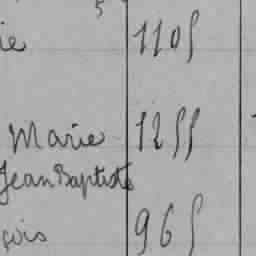 5
ie 1105
Marie 1255
Jean Baptiste
çois 965